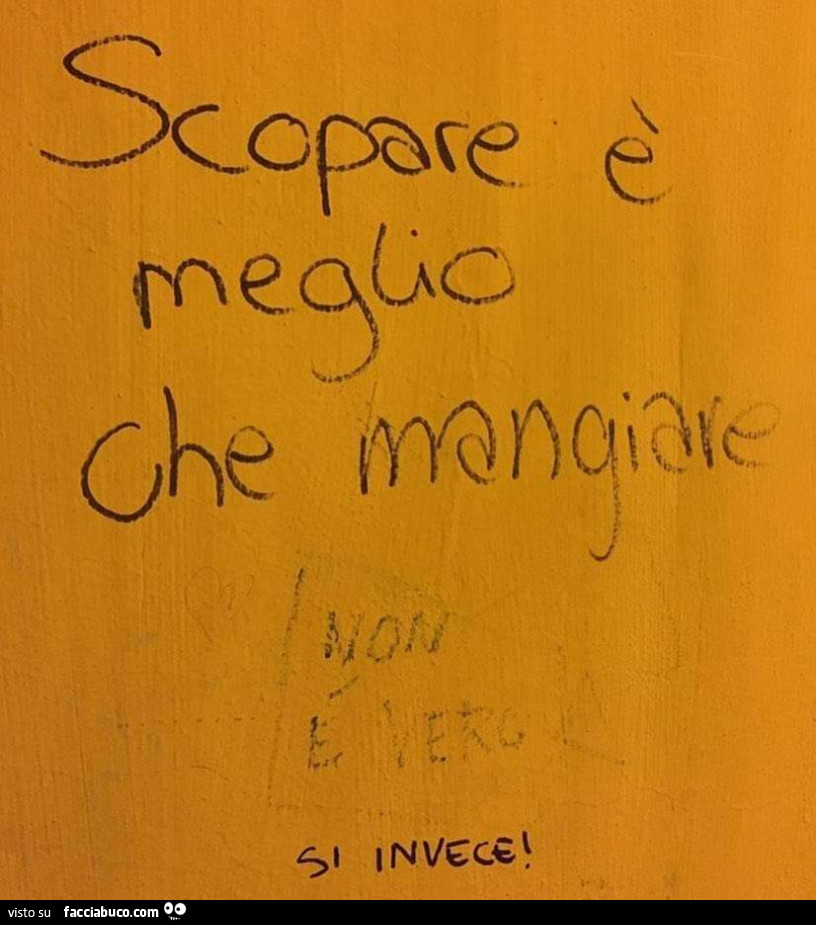 Scopare è
meglio
che mangiare
NON
É VERO
SI INVECE!
visto su facciabuco.com